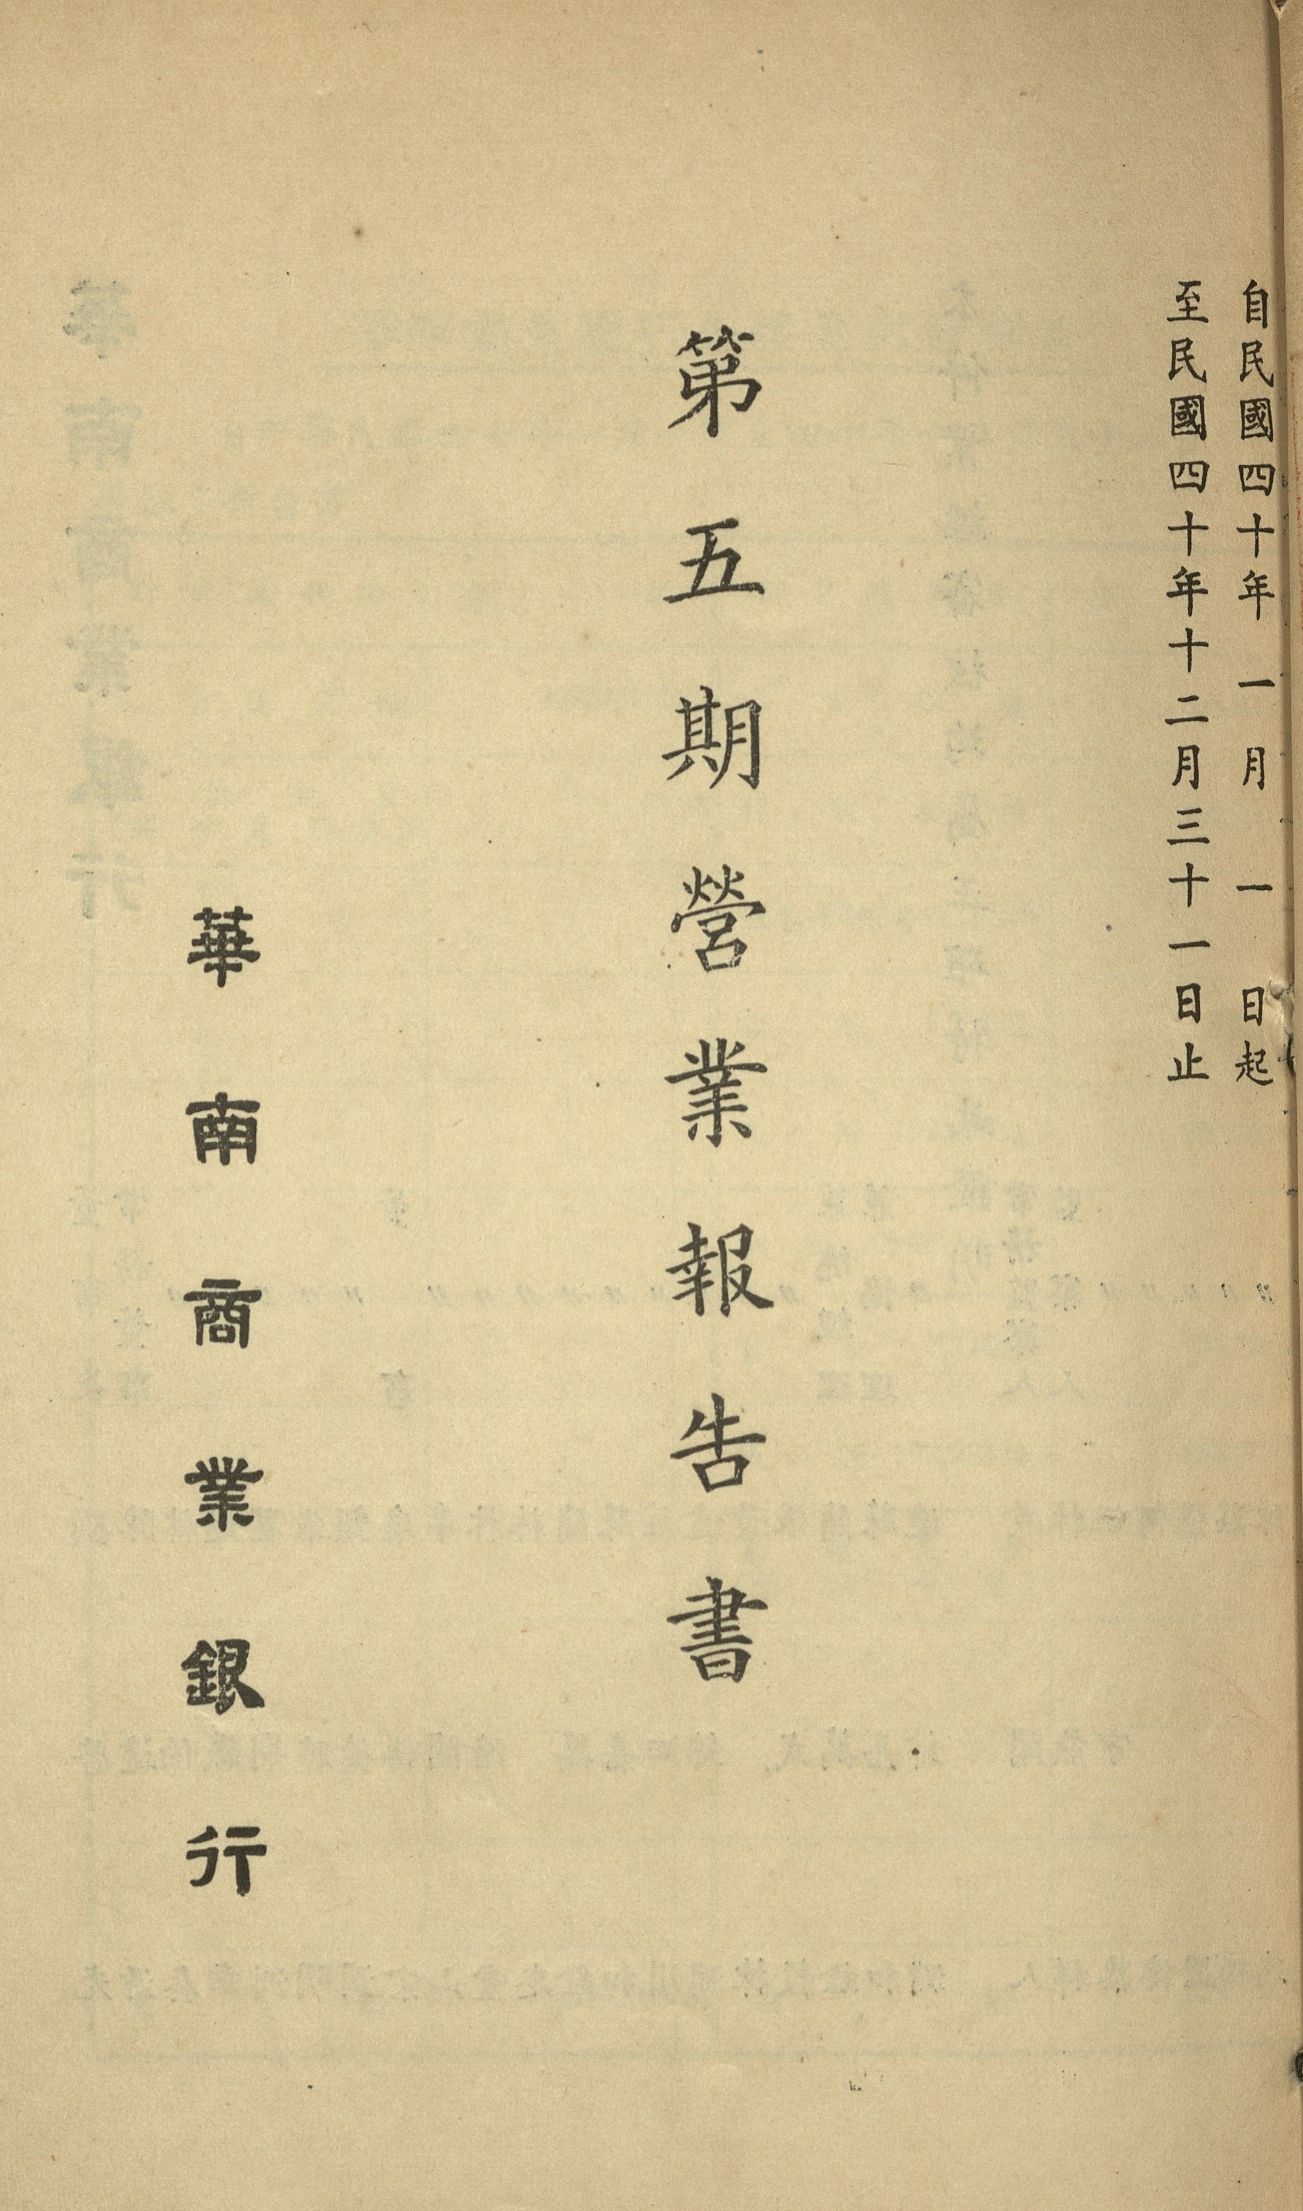 自民國四十年一月一日起
至民國四十年十二月三十一日止
第五期營業報告書
華南商業銀行